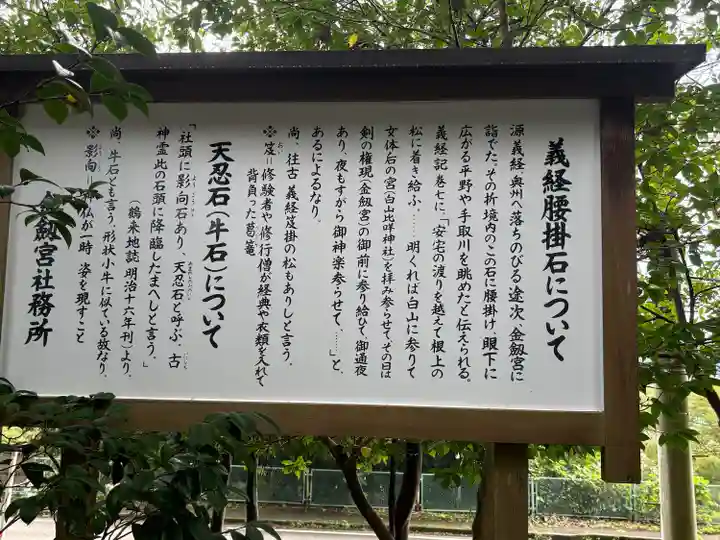 義経腰掛石について
源義経、奥州へ落ちのびる途次、金劔宮に
詣でた。その折境内の、この石に腰掛け、眼下に
広がる平野や手取川を眺めたと伝えられる。
義経記 巻七に、「安宅の渡りを越えて根上の
松に着き給ふ、……明くれば白山に参りて
女体后の宮(白山比咩神社)を拝み参らせて、その日は
剣の権現(金劔宮)の御前に参り給ひて、御通夜
あり、夜もすがら御神楽参らせて、……」と、
あるによるなり。
尚、往古 義経笈掛の松もありしと言う。
※笈=修験者や修行僧が経典や衣類を入れて
背負った葛篭
天忍石(牛石)について
「社頭に影向石あり、天忍石と呼ぶ、古
神霊此の石頭に降臨したまへしと言う。」
(鶴来地誌 明治十六年刊)より、
尚、牛石とも言う。形状小牛に似ている故なり。
※影向=仏が一時 姿を現すこと
金劔宮社務所